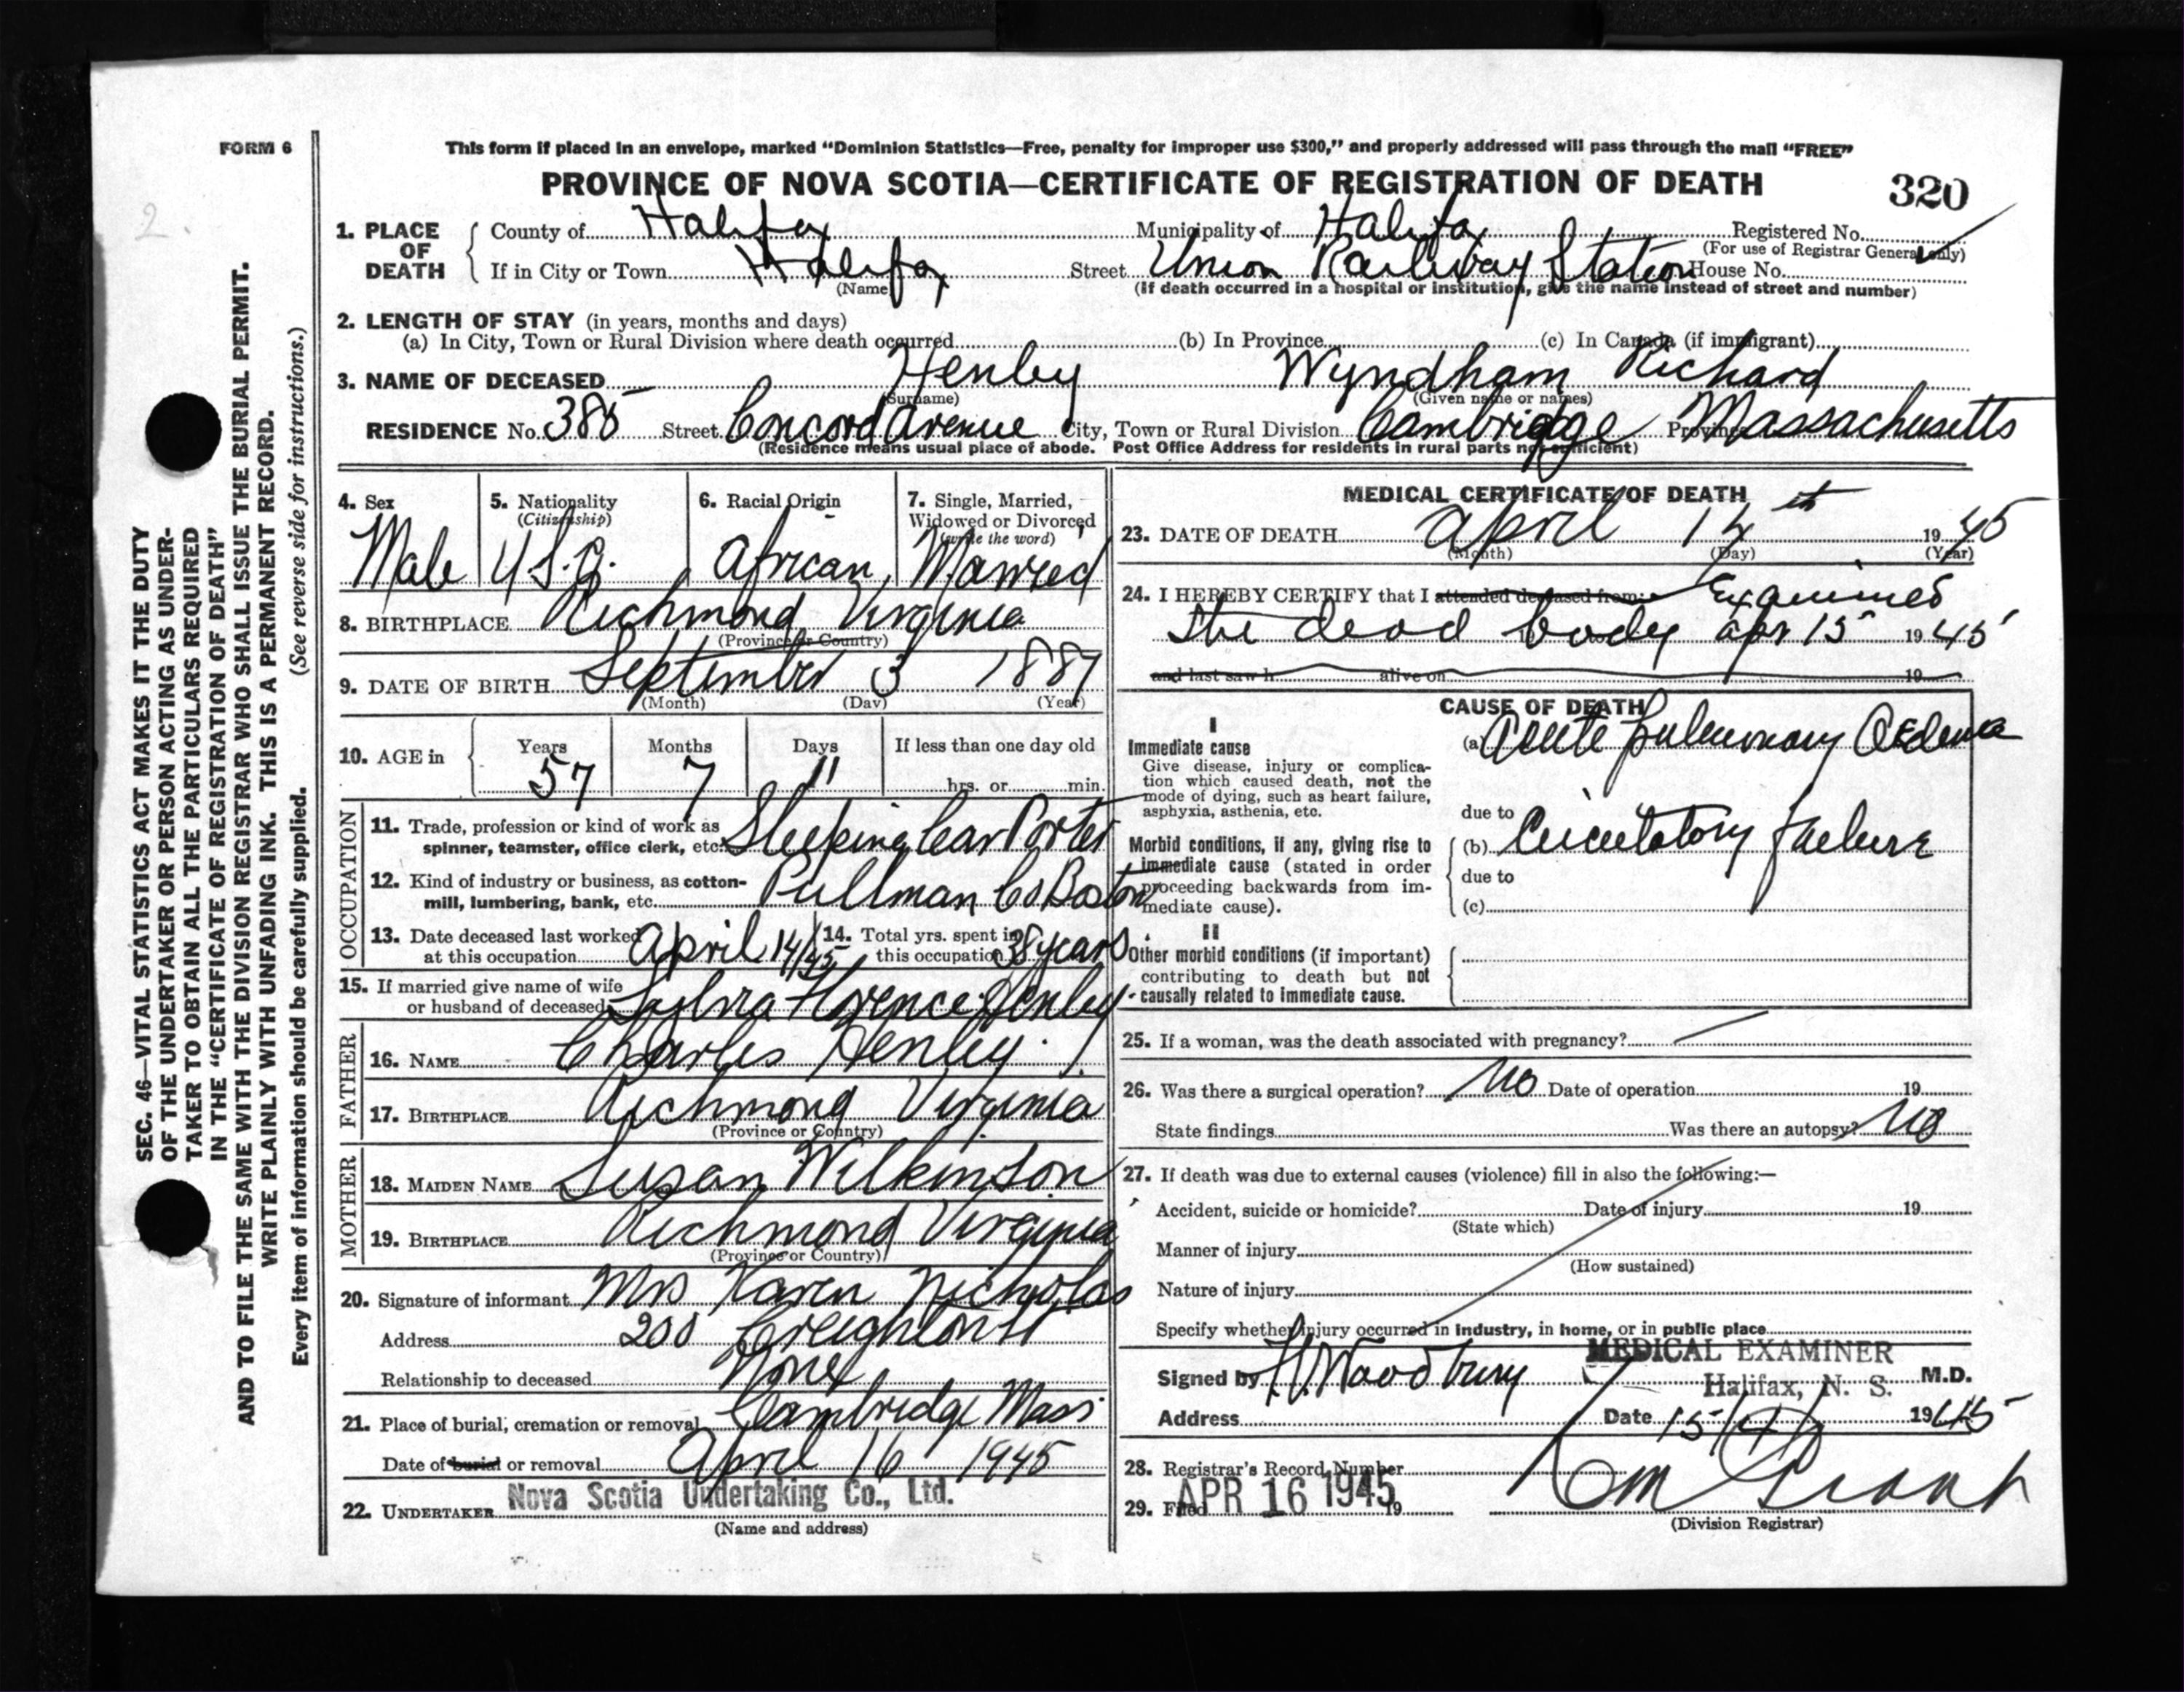 FORM 6
2.
This form if placed in an envelope, marked "Dominion Statistics—Free, penalty for improper use $300," and properly addressed will pass through the mail "FREE"
PROVINCE OF NOVA SCOTIA—CERTIFICATE OF REGISTRATION OF DEATH 320
1. PLACE OF DEATH
County of Halifax Municipality of Halifax Registered No.
(For use of Registrar General only)
If in City or Town Halifax Street Union Railway Station House No.
(Name) (If death occurred in a hospital or institution, give the name instead of street and number)
2. LENGTH OF STAY (in years, months and days)
(a) In City, Town or Rural Division where death occurred (b) In Province (c) In Canada (if immigrant)
3. NAME OF DECEASED Henley Wyndham Richard
(Surname) (Given name or names)
RESIDENCE No. 385 Street Concord Avenue City, Town or Rural Division Cambridge Province Massachusetts
(Residence means usual place of abode. Post Office Address for residents in rural parts not sufficient)
4. Sex Male
5. Nationality (Citizenship) U.S.A.
6. Racial Origin African
7. Single, Married, Widowed or Divorced (write the word) Married
8. BIRTHPLACE Richmond Virginia
(Province or Country)
9. DATE OF BIRTH September 3 1887
(Month) (Day) (Year)
10. AGE in Years 57 Months 7 Days 11 If less than one day old
hrs. or min.
OCCUPATION
11. Trade, profession or kind of work as
spinner, teamster, office clerk, etc. Sleeping Car Porter
12. Kind of industry or business, as cotton-
mill, lumbering, bank, etc. Pullman Co Boston
13. Date deceased last worked
at this occupation April 14/45
14. Total yrs. spent in
this occupation 38 years
15. If married give name of wife
or husband of deceased Florence Henley
FATHER
16. NAME Charles Henley
17. BIRTHPLACE Richmond Virginia
(Province or Country)
MOTHER
18. MAIDEN NAME Susan Wilkinson
19. BIRTHPLACE Richmond Virginia
(Province or Country)
20. Signature of informant Mrs Karen Nicholas
Address 200 Creighton St
Relationship to deceased None
21. Place of burial, cremation or removal Cambridge Mass
Date of burial or removal April 16 1945
22. UNDERTAKER Nova Scotia Undertaking Co., Ltd.
(Name and address)
MEDICAL CERTIFICATE OF DEATH
23. DATE OF DEATH April 14th 1945
(Month) (Day) (Year)
24. I HEREBY CERTIFY that I attended deceased from: Examined
the dead body apr 15 1945
and last saw h alive on 19
CAUSE OF DEATH
I
Immediate cause
Give disease, injury or complica-
tion which caused death, not the
mode of dying, such as heart failure,
asphyxia, asthenia, etc.
(a) Acute Pulmonary Oedema
due to
Morbid conditions, if any, giving rise to
immediate cause (stated in order
proceeding backwards from im-
mediate cause).
(b) Circulatory failure
due to
(c)
II
Other morbid conditions (if important)
contributing to death but not
causally related to immediate cause.
25. If a woman, was the death associated with pregnancy?
26. Was there a surgical operation? No Date of operation 19
State findings Was there an autopsy? No
27. If death was due to external causes (violence) fill in also the following:—
Accident, suicide or homicide? Date of injury 19
(State which)
Manner of injury
(How sustained)
Nature of injury
Specify whether injury occurred in industry, in home, or in public place
MEDICAL EXAMINER
Signed by Woodbury Halifax, N. S. M.D.
Address Date 15/4/ 1945
28. Registrar's Record Number
29. Filed APR 16 1945 19
(Division Registrar)
SEC. 46—VITAL STATISTICS ACT MAKES IT THE DUTY
OF THE UNDERTAKER OR PERSON ACTING AS UNDER-
TAKER TO OBTAIN ALL THE PARTICULARS REQUIRED
IN THE "CERTIFICATE OF REGISTRATION OF DEATH"
AND TO FILE THE SAME WITH THE DIVISION REGISTRAR WHO SHALL ISSUE THE BURIAL PERMIT.
WRITE PLAINLY WITH UNFADING INK. THIS IS A PERMANENT RECORD.
Every item of information should be carefully supplied. (See reverse side for instructions.)